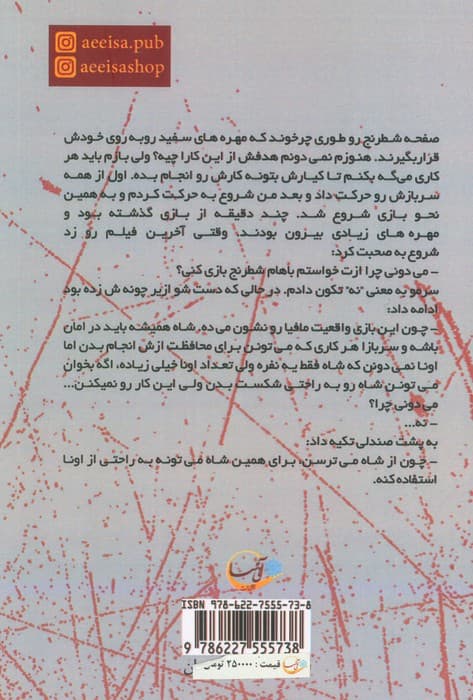 aeeisa.pub
aeeisashop
صفحه شطرنج رو طوری چرخوند که مهره های سفید روبه روی خودش
قراربگیرند. هنوزم نمی دونم هدفش از این کارا چیه؟ ولی بازم باید هر
کاری می‌گه بکنم تا کیارش بتونه کارش رو انجام بده. اول از همه
سربازش رو حرکت داد و بعد من شروع به حرکت کردم و به همین
نحو بازی شروع شد. چند دقیقه از بازی گذشته بود و
مهره های زیادی بیرون بودند، وقتی آخرین فیلم رو زد
شروع به صحبت کرد:
– می دونی چرا ازت خواستم باهام شطرنج بازی کنی؟
سرمو به معنی "نه" تکون دادم. در حالی که دست شو اززیر چونه ش زده بود
ادامه داد:
– چون این بازی واقعیت مافیا رو نشون می ده، شاه همیشه باید در امان
باشه و سربازا هر کاری که می تونن برای محافظت ازش انجام بدن اما
اونا نمی دونن که شاه فقط یه نفره ولی تعداد اونا خیلی زیاده، اگه بخوان
می تونن شاه رو به راحتی شکست بدن ولی این کار رو نمیکنن...
می دونی چرا؟
– ته...
به پشت صندلی تکیه داد:
– چون از شاه می ترسن، برای همین شاه می تونه به راحتی از اونا
استفاده کنه.
ISBN 978-622-7555-73-8
9 786227 555738
قیمت: ۲۵۰۰۰۰ تومان